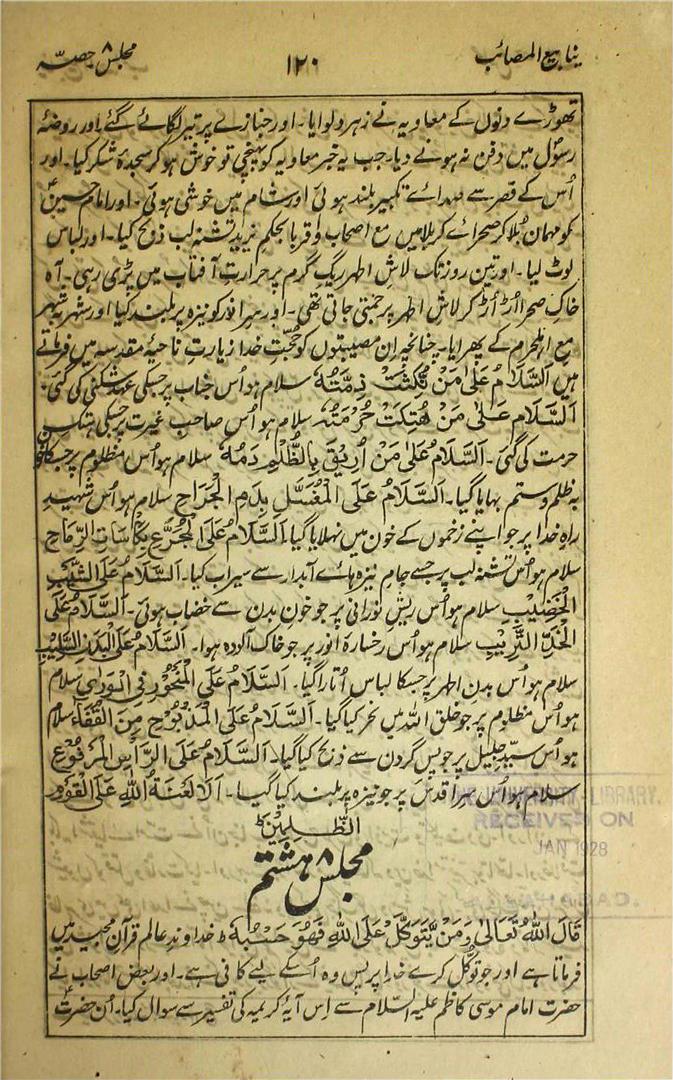 ینابیع المصائب ۱۲۰ مجلس ۸ حصہ
تھوڑے دنوں کے معاویہ نے زہر دلوایا۔ اور جنازے پر تیر لگائے گئے اور روضۂ
رسول میں دفن نہ ہونے دیا۔ جب یہ خبر معاویہ کو پہنچی تو خوش ہو کر سجدۂ شکر کیا۔ اور
اُس کے قصر سے صدائے تکبیر بلند ہوئی اور شام میں خوشی ہوئی۔ اور امام حسینؑ
کو مہمان بُلا کر صحرائے کربلا میں مع اصحاب و اقربا بحکم یزید تشنہ لب ذبح کیا۔ اور لباس
لوٹ لیا۔ اور تین روز تک لاش اطہر ریگ گرم پر حرارتِ آفتاب میں پڑی رہی۔ آہ
خاکِ صحرا اُڑ اُڑ کر لاش اطہر پر جمتی جاتی تھی۔ اور سر انور کو نیزہ پر بلند کیا اور شہر بہ شہر
مع اہلحرم کے پھرایا۔ چنانچہ ان مصیبتوں کو حُجّتِ خدا زیارتِ ناحیۂ مقدسہ میں فرماتے
ہیں اَلسَّلَامُ عَلٰی مَنْ نُکِثَتْ ذِمَّتُهٗ سلام ہو اُس جناب پر جسکی عہد شکنی کی گئی۔
اَلسَّلَام عَلٰی مَنْ هُتِکَتْ حُرْمَتُهٗ سلام ہو اُس صاحب غیرت پر جسکی ہتک
حرمت کی گئی۔ اَلسَّلَامُ عَلٰی مَنْ اُرِیْقَ بِالظُّلْمِ دَمُهٗ سلام ہو اُس مظلوم پر جسکا خون
بہ ظلم و ستم بہایا گیا۔ اَلسَّلَامُ عَلَی الْمُغَسَّلِ بِدَمِ الْجَرَاحِ سلام ہو اُس شہیدِ
راہِ خدا پر جو اپنے زخموں کے خون میں نہلایا گیا۔ اَلسَّلَامُ عَلَی الْمُجَرَّعِ بِکَاسَاتِ الرِّمَاحِ
سلام ہو اُس تشنہ لب پر جسے جام نیزہ ہائے آبدار سے سیراب کیا۔ اَلسَّلَامُ عَلَی الشَّیْبِ
الْخَضِیْبِ سلام ہو اُس ریشِ نورانی پر جو خونِ بدن سے خضاب ہوئی۔ اَلسَّلَامُ عَلَی
الْخَدِّ التَّرِیْبِ سلام ہو اُس رخسارۂ انور پر جو خاک آلودہ ہوا۔ اَلسَّلَامُ عَلَی الْبَدَنِ السَّلِیْبِ
سلام ہو اُس بدنِ اطہر پر جسکا لباس اُتارا گیا۔ اَلسَّلَامُ عَلَی الْمَنْحُوْرِ فِی الْوَرٰی سلام
ہو اُس مظلوم پر جو خلق اللہ میں نحر کیا گیا۔ اَلسَّلَامُ عَلَی الْمَذْبُوْحِ مِنَ الْقَفَاءِ سلام
ہو اُس سیّدِ جلیل پر جو پس گردن سے ذبح کیا گیا۔ اَلسَّلَامُ عَلَی الرَّاْسِ الْمَرْفُوْعِ
سلام ہو اُس سرِ اقدس پر جو نیزہ پر بلند کیا گیا۔ اَلَا لَعْنَةُ اللهِ عَلَی الْقَوْمِ
الظّٰلِمِیْنَ ط
مجلس ۸ ہشتم
قَالَ اللهُ تَعَالٰی وَمَنْ یَّتَوَکَّلْ عَلَی اللهِ فَهُوَ حَسْبُهٗ ط خداوندِ عالم قرآن مجید میں
فرماتا ہے اور جو توکّل کرے خدا پر پس وہ اُسکے لیے کافی ہے۔ اور بعض اصحاب نے
حضرت امام موسیٰ کاظم علیہ السّلام سے اِس آیۂ کریمہ کی تفسیر سے سوال کیا۔ اُن حضرتؑ
LIBRARY.
RECEIVED ON
JAN 1928